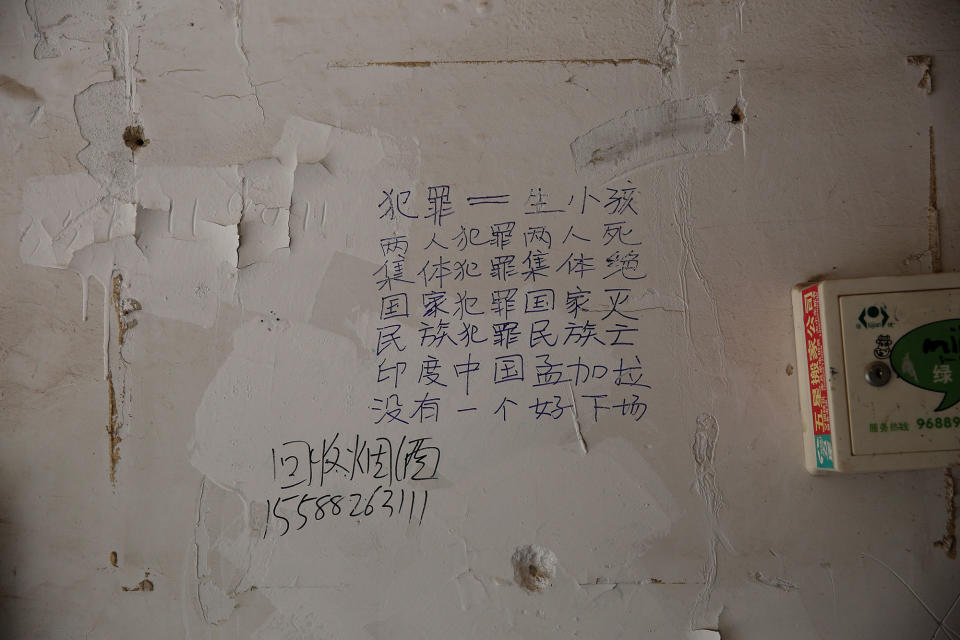 犯罪=生小孩
两人犯罪两人死
集体犯罪集体绝
国家犯罪国家灭
民族犯罪民族亡
印度中国孟加拉
没有一个好下场
回收烟酒
15588263111
五星搬家公司
绿
服务热线 9688